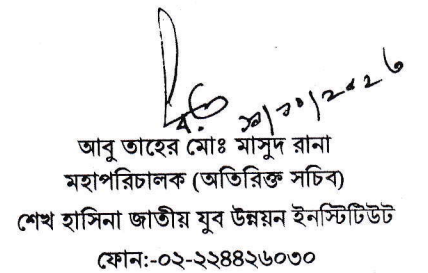 আবু তাহের মোঃ মাসুদ রানা
মহাপরিচালক (অতিরিক্ত সচিব)
শেখ হাসিনা জাতীয় যুব উন্নয়ন ইনস্টিটিউট
ফোন:-০২-২২৪৪২৬০৩০